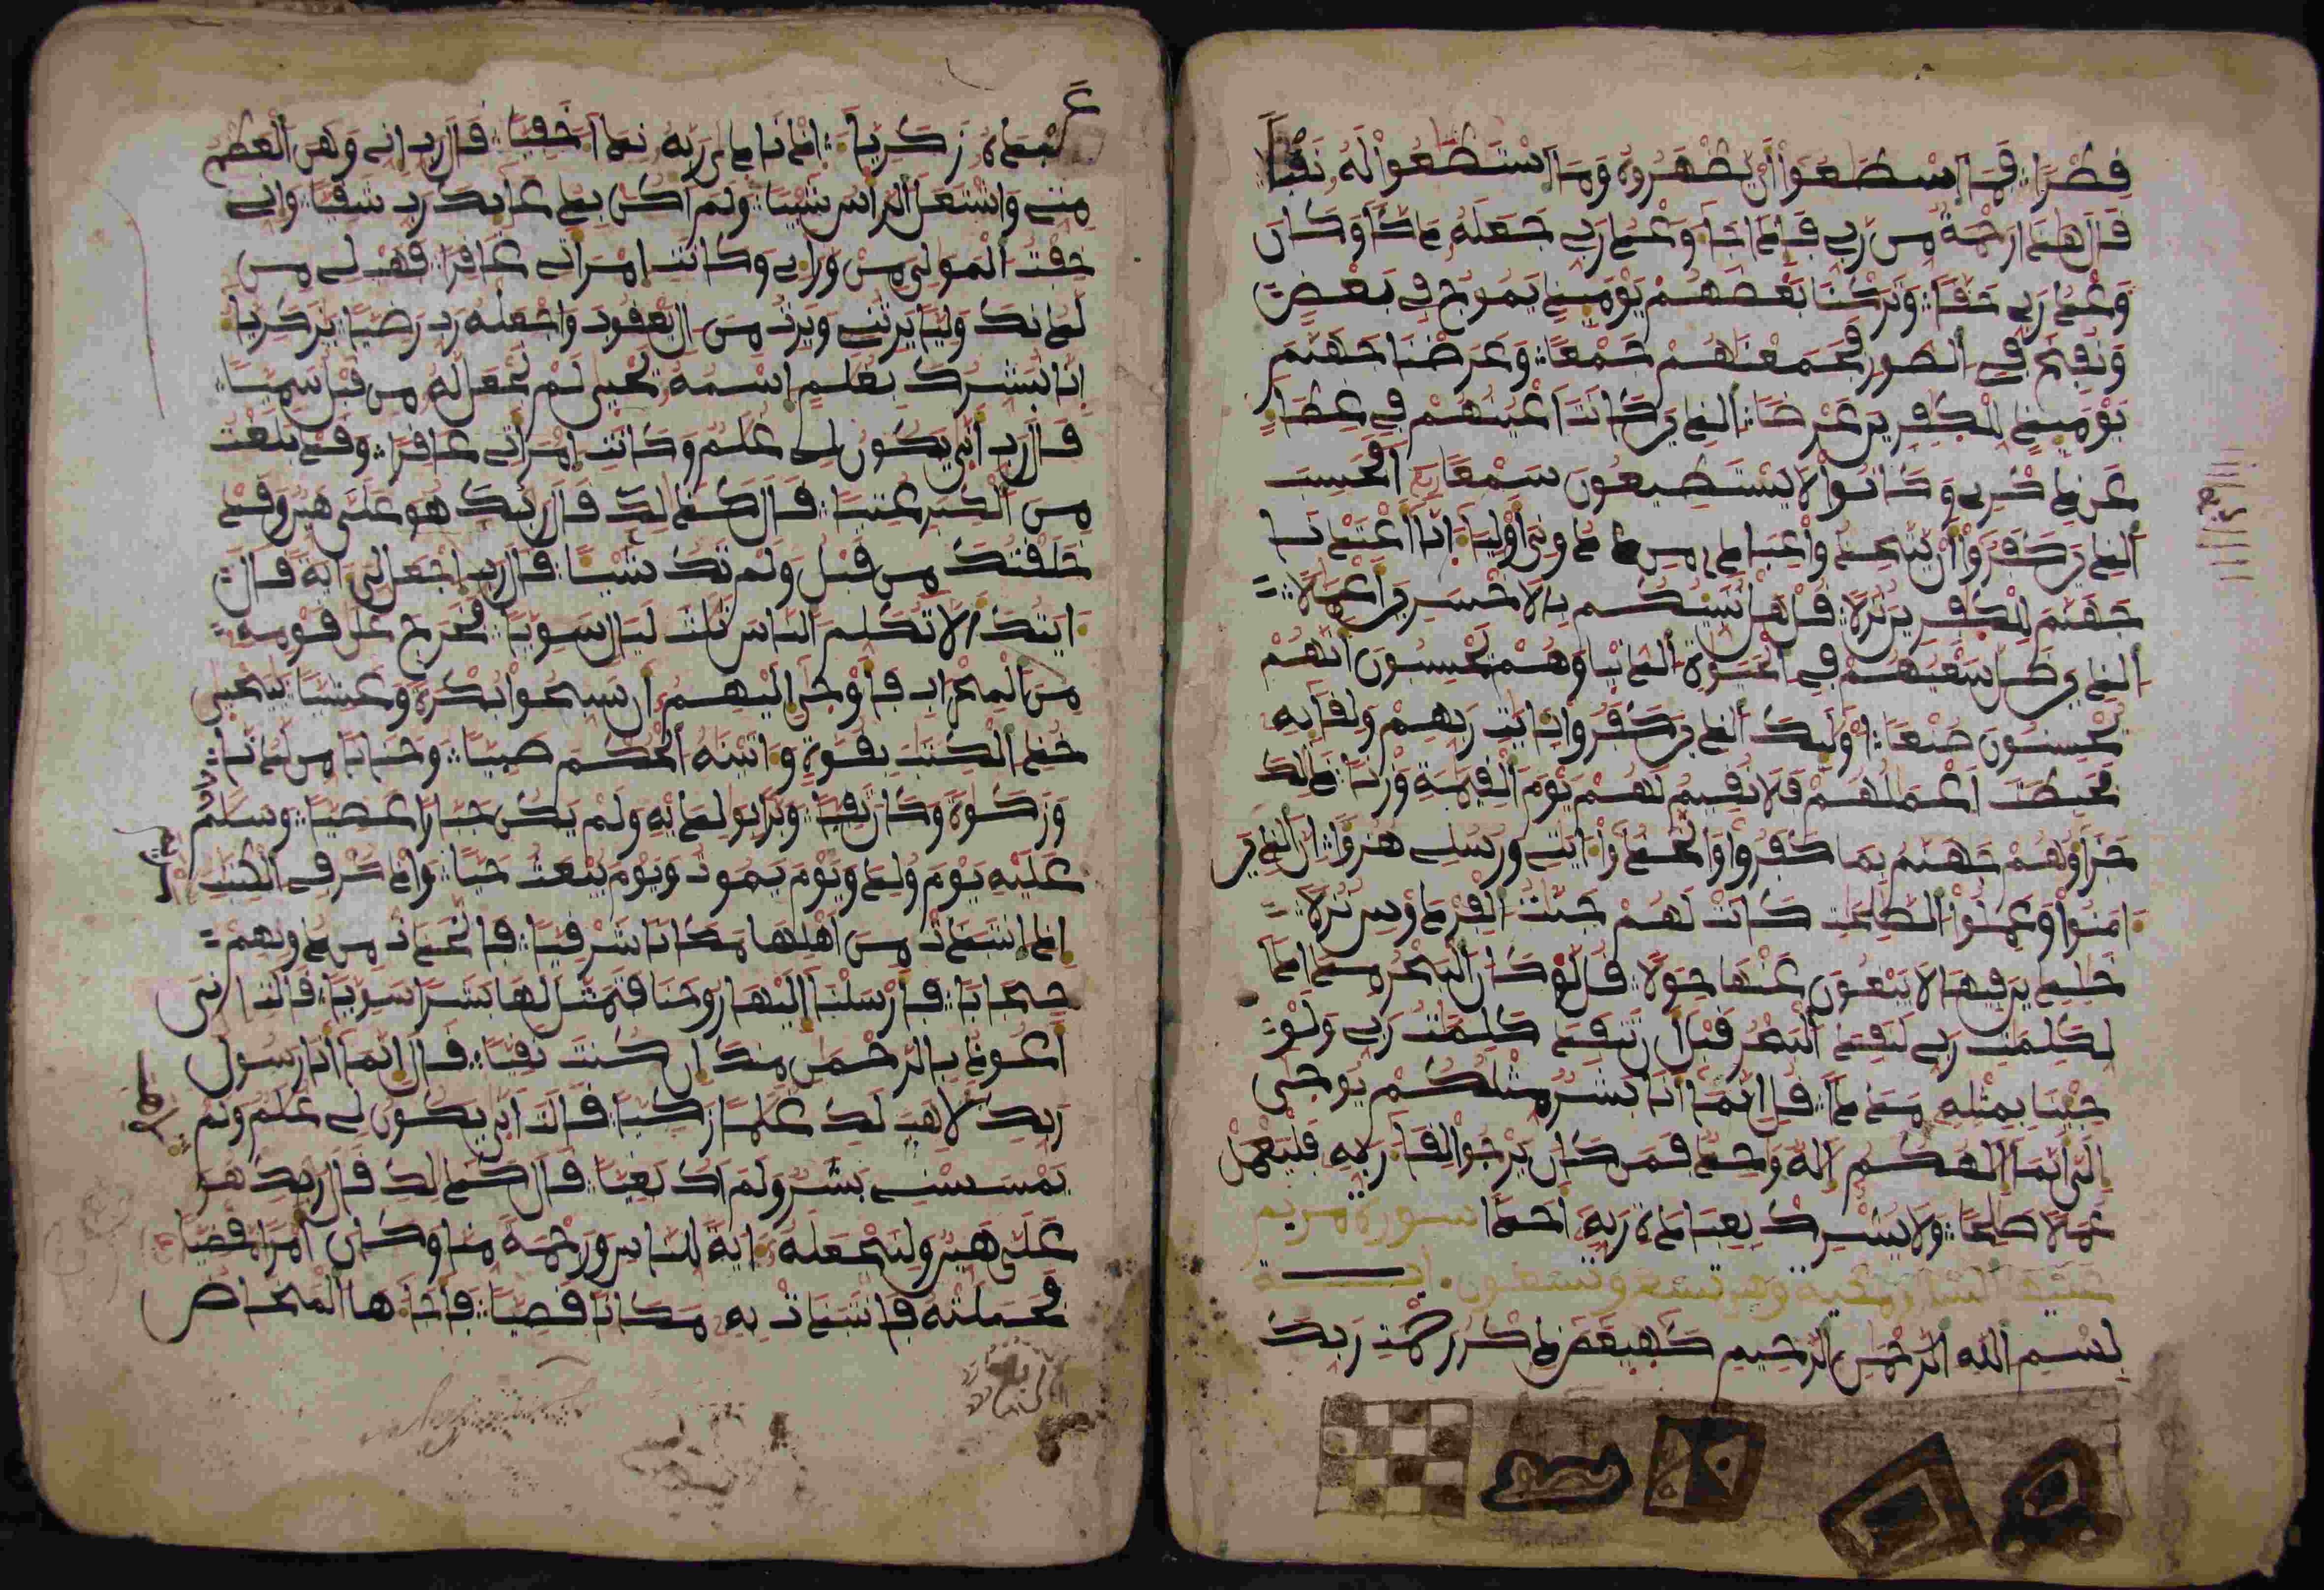 قِطْرًا فَمَا اسْطَعُوا أَن يَظْهَرُوهُ وَمَا اسْتَطَعُوا لَهُ نَقْبًا
قَالَ هَذَا رَحْمَةٌ مِن رَبِّي فَإِذَا جَا وَعْدُ رَبِّي جَعَلَهُ دَكًّا وَكَانَ
وَعْدُ رَبِّي حَقًّا وَتَرَكْنَا بَعْضَهُمْ يَوْمَئِذٍ يَمُوجُ فِي بَعْضٍ
وَنُفِخَ فِي الصُّورِ فَجَمَعْنَهُمْ جَمْعًا وَعَرَضْنَا جَهَنَّمَ
يَوْمَئِذٍ لِلْكَفِرِينَ عَرْضًا الذِينَ كَانَتْ أَعْيُنُهُمْ فِي غِطَا
عَن ذِكْرِي وَكَانُوا لَا يَسْتَطِيعُونَ سَمْعًا أَفَحَسِبَ
الذِينَ كَفَرُوا أَن يَتَّخِذُوا عِبَادِي مِن دُونِي أَوْلِيَا إِنَّا أَعْتَدْنَا
جَهَنَّمَ لِلْكَفِرِينَ نُزُلًا قُلْ هَلْ نُنَبِّئُكُم بِالَاخْسَرِينَ أَعْمَلًا
الذِينَ ضَلَّ سَعْيُهُمْ فِي الْحَيَوةِ الدُّنْيَا وَهُمْ يَحْسِبُونَ أَنَّهُمْ
يُحْسِنُونَ صُنْعًا أُوْلَئِكَ الذِينَ كَفَرُوا بِآيَتِ رَبِّهِمْ وَلِقَائِهِ
فَحَبِطَتَ اعْمَلُهُمْ فَلَا نُقِيمُ لَهُمْ يَوْمَ الْقِيَمَةِ وَزْنًا ذَلِكَ
جَزَاؤُهُمْ جَهَنَّمُ بِمَا كَفَرُوا وَاتَّخَذُوا آيَتِي وَرُسُلِي هُزُؤًا إِنَّ الذِينَ
آمَنُوا وَعَمِلُوا الصَّلِحَتِ كَانَتْ لَهُمْ جَنَّتُ الْفِرْدَوْسِ نُزُلًا
خَلِدِينَ فِيهَا لَا يَبْغُونَ عَنْهَا حِوَلًا قُل لَوْ كَانَ الْبَحْرُ مِدَادًا
لِكَلِمَتِ رَبِّي لَنَفِدَ الْبَحْرُ قَبْلَ أَن تَنفَدَ كَلِمَتُ رَبِّي وَلَوْ
جِئْنَا بِمِثْلِهِ مَدَدًا قُلِ إِنَّمَا أَنَا بَشَرٌ مِثْلُكُمْ يُوحَى
إِلَيَّ أَنَّمَا إِلَهُكُمْ إِلَهٌ وَحِدٌ فَمَن كَانَ يَرْجُوا لِقَا رَبِّهِ فَلْيَعْمَلْ
عَمَلًا صَلِحًا وَلَا يُشْرِكْ بِعِبَادَةِ رَبِّهِ أَحَدًا سورة مريم
عليها السلا مكية وهي تسع وتسعون اية
بِسْمِ اللهِ الرَّحْمَنِ الرَّحِيمِ كَهيعص ذِكْرُ رَحْمَتِ رَبِّكَ
عَبْدَهُ زَكَرِيَّا إِذْ نَادَى رَبَّهُ نِدَا خَفِيًّا قَالَ رَبِّ إِنِّي وَهَنَ الْعَظْمُ
مِنِّي وَاشْتَعَلَ الرَّأْسُ شَيْبًا وَلَمَ أَكُن بِدُعَائِكَ رَبِّ شَقِيًّا وَإِنِّي
خِفْتُ الْمَوَلِيَ مِن وَرَائِي وَكَانَتِ امْرَأَتِي عَاقِرًا فَهَبْ لِي مِن
لَدُنكَ وَلِيًّا يَرِثُنِي وَيَرِثُ مِنَ الِ يَعْقُوبَ وَاجْعَلْهُ رَبِّ رَضِيًّا يَزَكَرِيَّا
إِنَّا نُبَشِّرُكَ بِغُلَمٍ اسْمُهُ يَحْيَى لَمْ نَجْعَل لَهُ مِن قَبْلُ سَمِيًّا
قَالَ رَبِّ أَنَّى يَكُونُ لِي غُلَمٌ وَكَانَتِ امْرَأَتِي عَاقِرًا وَقَدْ بَلَغْتُ
مِنَ الْكِبَرِ عُتِيًّا قَالَ كَذَلِكَ قَالَ رَبُّكَ هُوَ عَلَيَّ هَيِّنٌ وَقَدْ
خَلَقْتُكَ مِن قَبْلُ وَلَمْ تَكُ شَيْئًا قَالَ رَبِّ اجْعَل لِيَ آيَةً قَالَ
آيَتُكَ أَلَّا تُكَلِّمَ النَّاسَ ثَلَثَ لَيَالٍ سَوِيًّا فَخَرَجَ عَلَى قَوْمِهِ
مِنَ الْمِحْرَابِ فَأَوْحَى إِلَيْهِمُ أَن سَبِّحُوا بُكْرَةً وَعَشِيًّا يَيَحْيَى
خُذِ الْكِتَبَ بِقُوَّةٍ وَآتَيْنَهُ الْحُكْمَ صَبِيًّا وَحَنَانًا مِن لَدُنَّا
وَزَكَوةً وَكَانَ تَقِيًّا وَبَرًّا بِوَلِدَيْهِ وَلَمْ يَكُن جَبَّارًا عَصِيًّا وَسَلَمٌ
عَلَيْهِ يَوْمَ وُلِدَ وَيَوْمَ يَمُوتُ وَيَوْمَ يُبْعَثُ حَيًّا وَاذْكُرْ فِي الْكِتَبِ
إِذِ انتَبَذَتْ مِنَ أَهْلِهَا مَكَانًا شَرْقِيًّا فَاتَّخَذَتْ مِن دُونِهِمْ
حِجَابًا فَأَرْسَلْنَا إِلَيْهَا رُوحَنَا فَتَمَثَّلَ لَهَا بَشَرًا سَوِيًّا قَالَتِ إِنِّيَ
أَعُوذُ بِالرَّحْمَنِ مِنكَ إِن كُنتَ تَقِيًّا قَالَ إِنَّمَا أَنَا رَسُولُ
رَبِّكِ لَاهَبَ لَكِ غُلَمًا زَكِيًّا قَالَتَ أَنَّى يَكُونُ لِي غُلَمٌ وَلَمْ
يَمْسَسْنِي بَشَرٌ وَلَمَ أَكُ بَغِيًّا قَالَ كَذَلِكِ قَالَ رَبُّكِ هُوَ
عَلَيَّ هَيِّنٌ وَلِنَجْعَلَهُ آيَةً لِلنَّاسِ وَرَحْمَةً مِنَّا وَكَانَ أَمْرًا مَقْضِيًّا
فَحَمَلَتْهُ فَانتَبَذَتْ بِهِ مَكَانًا قَصِيًّا فَأَجَاءَهَا الْمَخَاضُ